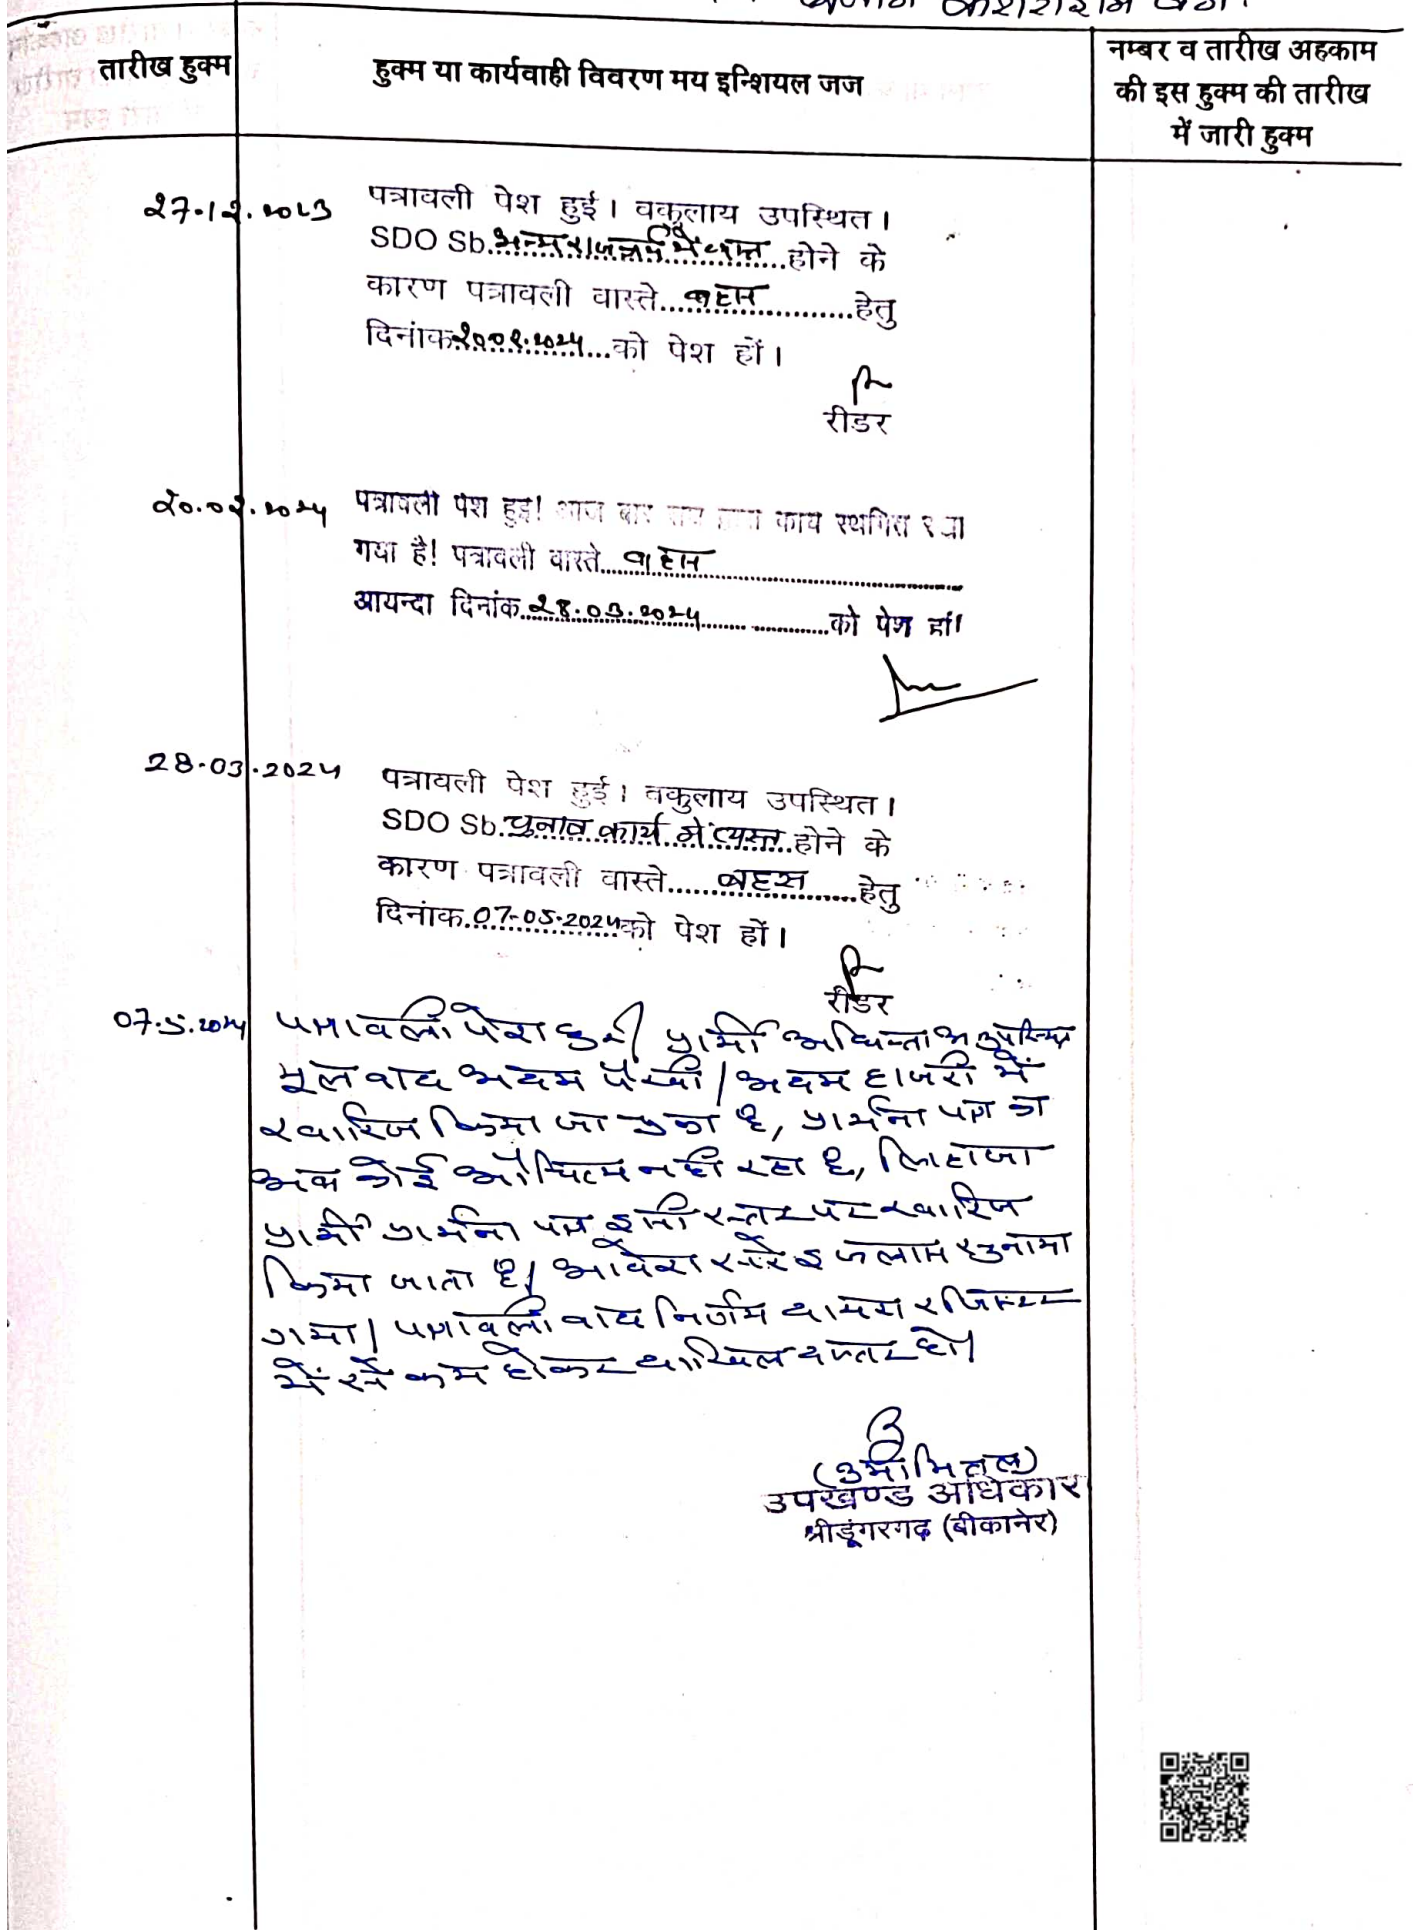 तारीख हुक्म
हुक्म या कार्यवाही विवरण मय इन्शियल जज
नम्बर व तारीख अहकाम
की इस हुक्म की तारीख
में जारी हुक्म
27.12.2023
पत्रावली पेश हुई। वकुलाय उपस्थित।
SDO Sb. अन्य राजकार्य में व्यस्त होने के
कारण पत्रावली वास्ते बहस हेतु
दिनांक 20.02.2024 को पेश हों।
रीडर
20.02.2024
पत्रावली पेश हुई! आज बार संघ द्वारा कार्य स्थगित रखा
गया है! पत्रावली वास्ते बहस
आयन्दा दिनांक 28.03.2024 को पेश हो!
28.03.2024
पत्रावली पेश हुई। वकुलाय उपस्थित।
SDO Sb. चुनाव कार्य में व्यस्त होने के
कारण पत्रावली वास्ते बहस हेतु
दिनांक 07-05-2024 को पेश हों।
रीडर
07.5.2024
पत्रावली पेश हुई। प्रार्थी अधिवक्ता
मूल वाद अदम पैरवी / अदम हाजरी में
खारिज किया जा चुका है, प्रार्थना पत्र का
अब कोई औचित्य नहीं रहा है, लिहाजा
प्रार्थी प्रार्थना पत्र इसी स्तर पर खारिज
किया जाता है। आदेश सरे इजलास सुनाया
गया। पत्रावली बाद निर्णय दायरा रजिस्टर
में से कम होकर दाखिल दफ्तर हो।
(उमा मित्तल)
उपखण्ड अधिकार
श्रीडूंगरगढ़ (बीकानेर)